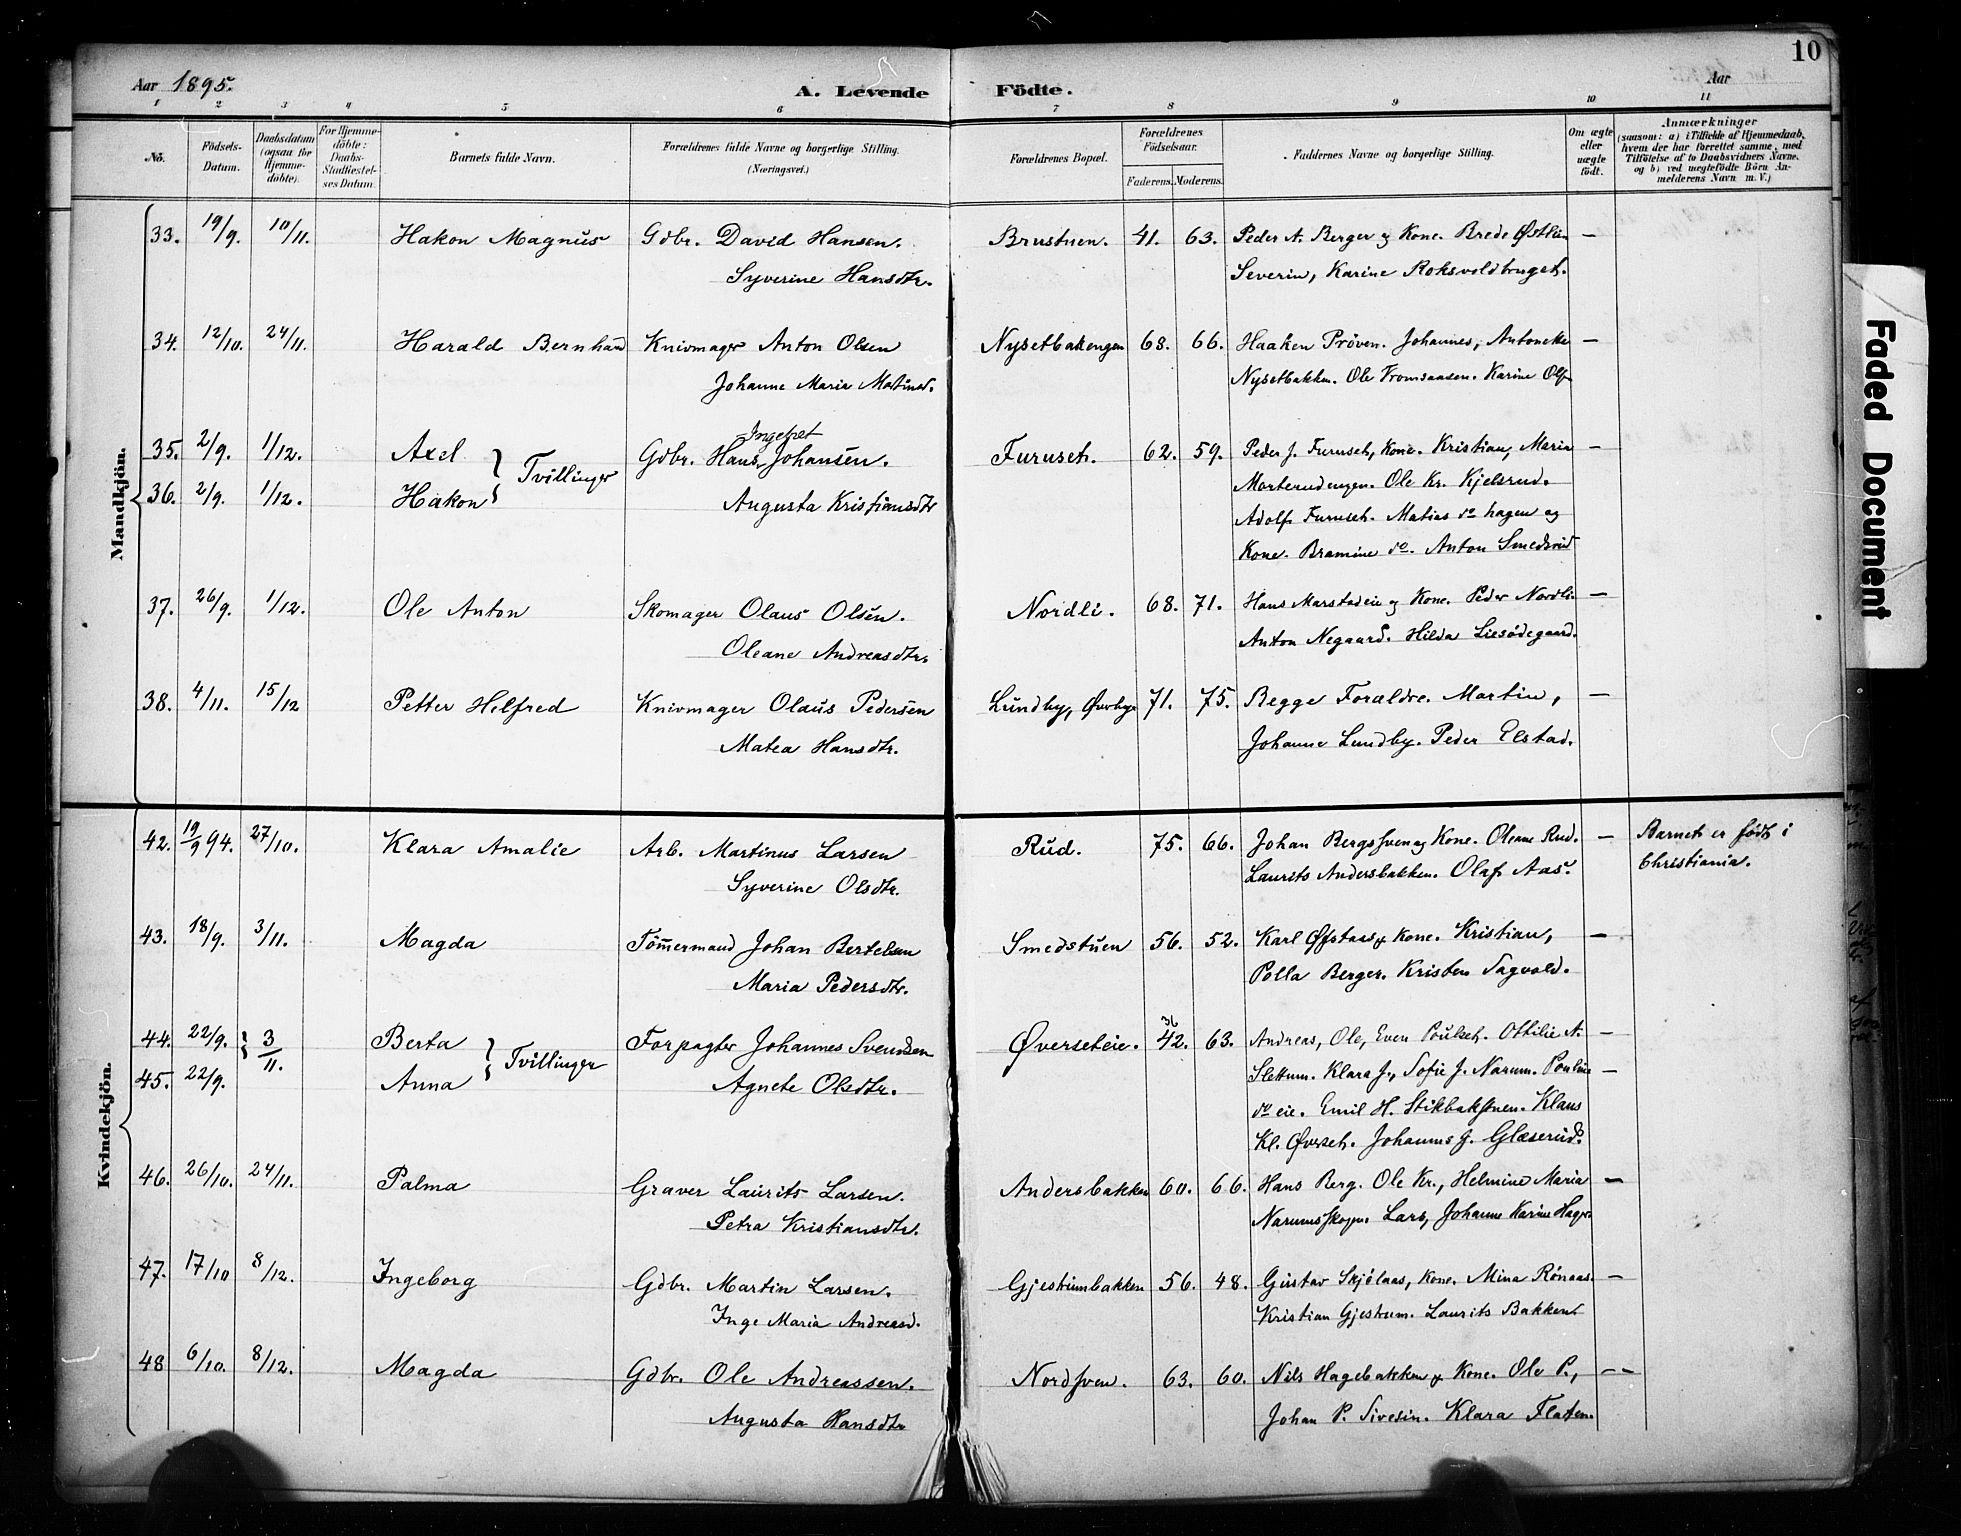 Aar 1895. A. Levende Födte. Aar 10
1 2 3 4 5 6 7 8 9 10 11
No. Födsels-Datum. Daabsdatum (ogsaa for Hjemmedöbte). For Hjemmedöbte: Daabs-Stadfæstelses Datum. Barnets fulde Navn. Forældrenes fulde Navne og borgerlige Stilling. (Næringsvei.) Forældrenes Bopæl. Forældrenes Födselsaar. Faderens. Moderens. Faddernes Navne og borgerlige Stilling. Om ægte eller uægte födt. Anmærkninger (saasom: a) i Tilfælde af Hjemmedaab, hvem der har forrettet samme, med Tilföielse af to Daabsvidners Navne, og b) ved uægtefödte Börn Anmelderens Navn m. V.)
Mandkjön.
33. 19/9. 10/11. Hakon Magnus Gdbr. David Hansen. Brustuen. 41. 63. Peder A. Berger & Kone. Brede Østlien —
Syverine Hansdtr. Severin, Karine Roksvoldbruget.
34. 12/10. 24/11. Harald Bernhard Knivmager Anton Olsen Nysetbakengen 68. 66. Haaken Pröven. Johannes, Antonette —
Johanne Maria Matinsd. Nysetbakken. Ole Tromsaasen. Karine Ols
Ingebret
35. 2/9. 1/12. Axel } Tvillinger Gdbr. Hans Johansen. Furuset. 62. 59. Peder J. Furuset, Kone. Kristian, Maria —
36. 2/9. 1/12. Hakon Augusta Kristiansdtr Morterudengen. Ole Kr. Kjelsrud.
Adolf Furuset. Matias do hagen og
Kone. Bramine do. Anton Smedsrud
37. 26/9. 1/12. Ole Anton Skomager Olaus Olsen. Nordli. 68. 71. Hans Marstadeie & Kone. Peder Nordli —
Oleane Andreasdtr. Anton Negaard. Hilda Liesödegaard.
38. 4/11. 15/12 Petter Hilfred Knivmager Olaus Pedersen Lundby, Øverbye 71. 75. Begge Forældre. Martin, —
Matea Hansdtr. Johanne Lundby. Peder Elstad.
Kvindekjön.
42. 19/9 94. 27/10. Klara Amalie Arb. Martinus Larsen Rud. 75. 66. Johan Bergssven og Kone. Oleane Rud. — Barnet er født i
Syverine Olsdtr. Laurits Andersbakken. Olaf Aas. Christiania.
43. 18/9. 3/11. Magda Tömmermand Johan Bertelsen Smedstuen 56. 52. Karl Øfstaas & Kone. Kristian, —
Maria Pedersdtr. Polla Berger. Kristen Sagvold.
36
44. 22/9. } 3/11. Berta } Tvillinger Forpagter Johannes Svendsen Øverseteie. 42. 63. Andreas, Ole, Even Poulset. Ottilie A. —
45. 22/9. Anna Agnete Olsdtr. Slettum. Klara J., Sofie J. Narum. Pouline —
do eie. Emil H. Stikbaksveen. Klaus
Kl. Øverset. Johannes J. Glæserud.
46. 26/10. 24/11. Palma Graver Laurits Larsen. Andersbakken 60. 66. Hans Berg. Ole Kr., Helmine Maria —
Petra Kristiansdtr. Narumsskogen. Lars, Johanne Karine Hage.
47. 17/10 8/12. Ingeborg Gdbr. Martin Larsen. Gjestrumbakken 56. 48. Gustav Skjölaas, Kone. Mina Rönaas. —
Inge Maria Andreasd. Kristian Gjestrum. Laurits Bakken
48 6/10. 8/12. Magda Gdbr. Ole Andreassen. Nordsven. 63. 60. Nils Hagebakken & Kone. Ole P., — —
Augusta Hansdtr Johan P. Sivesin. Klara Flaten.
Faded Document